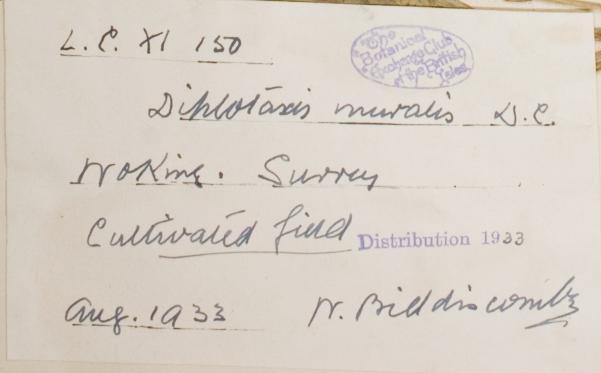 L.C. XI 150
The
Botanical
Exchange Club
of the British
Isles
Diplotaxis muralis D.C.
Woking. Surrey
Cultivated field
Distribution 1933
Aug. 1933 W. Biddiscombe